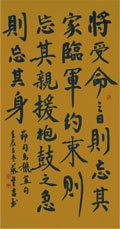 將受命之日則忘其
家臨軍約束則
忘其親援枹鼓之急
則忘其身